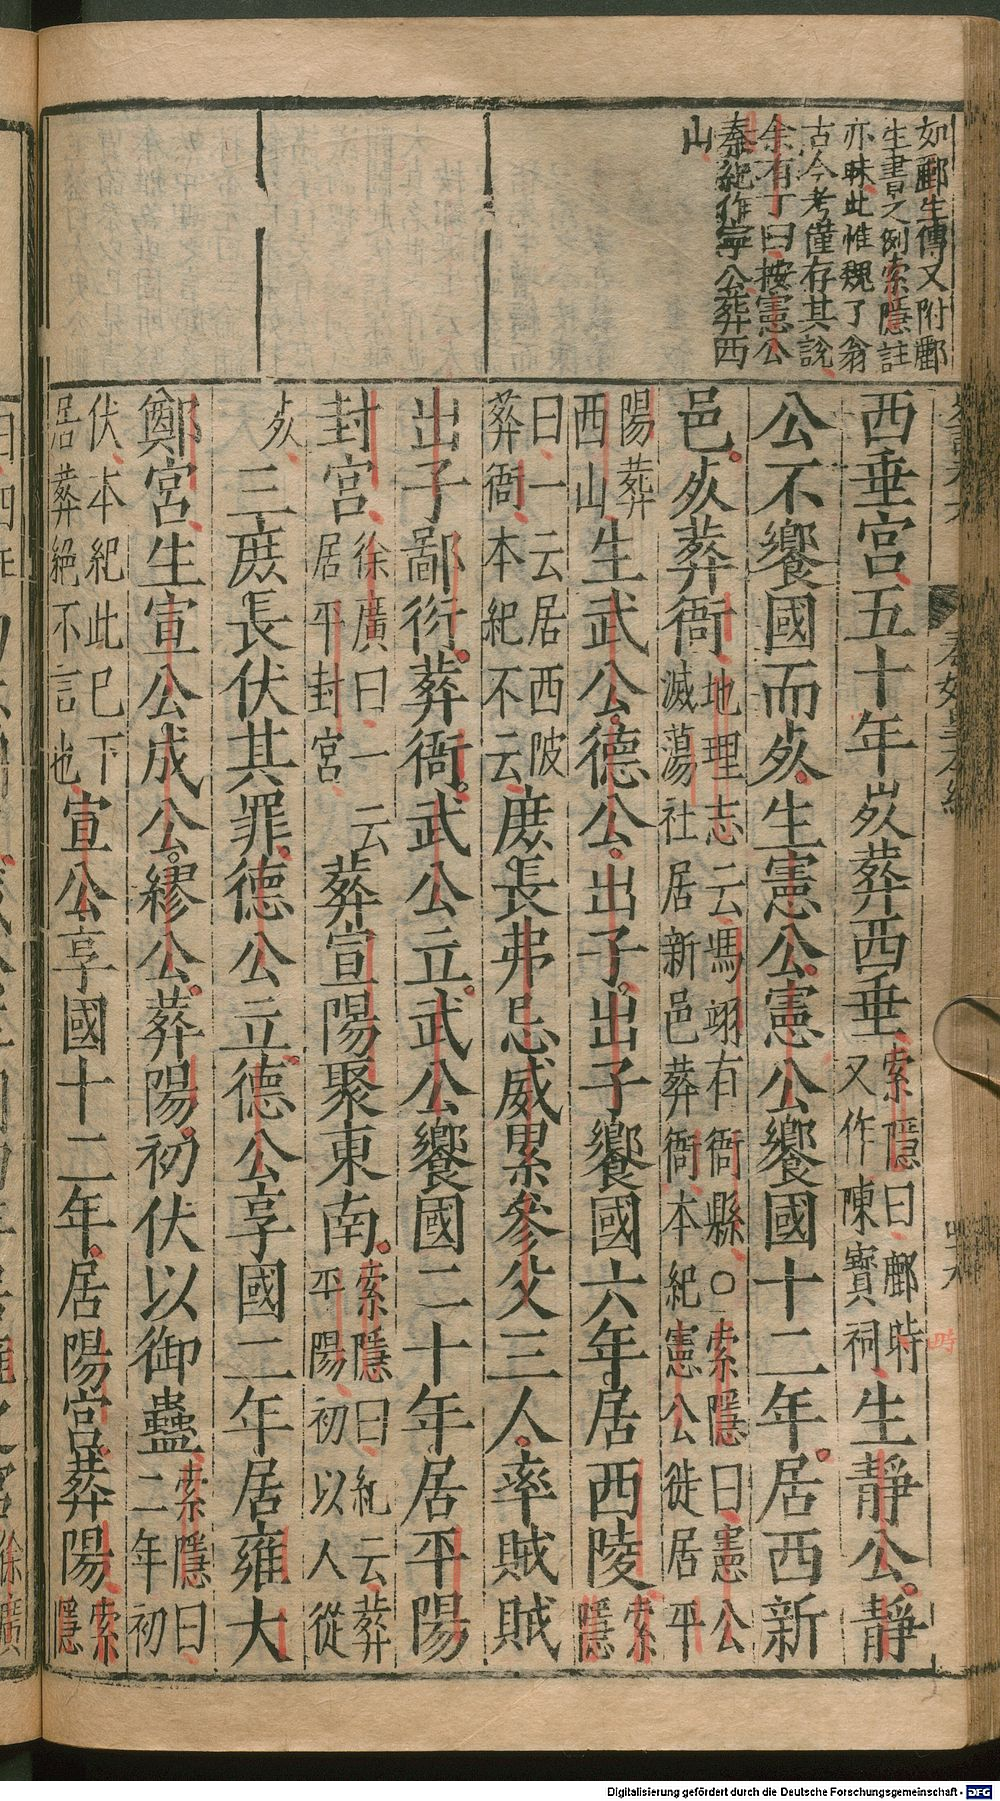 如酈生傳又附酈
生書之例索隱註
亦昧此惟魏了翁
古今考僅存其說
余有丁曰按憲公
秦紀作寧公葬西
山
西垂宮五十年死葬西垂索隱曰酈畤又作陳寶祠生靜公靜
公不饗國而死生憲公憲公饗國十二年居西新
邑死葬衙地理志云馮翊有衙縣○索隱曰憲公滅蕩社居新邑葬衙本紀憲公徙居平
陽葬西山生武公德公出子出子饗國六年居西陵索隱
曰一云居西陂葬衙本紀不云庶長弗忌威累參父三人率賊賊
出子鄙衍葬衙武公立武公饗國二十年居平陽
封宮徐廣曰一云居平封宮葬宣陽聚東南索隱曰紀云葬平陽初以人從
死三庶長伏其罪德公立德公享國二年居雍大
鄭宮生宣公成公繆公葬陽初伏以御蠱索隱曰二年初
伏本紀此已下居葬絕不言也宣公享國十二年居陽宮葬陽索隱
Digitalisierung gefördert durch die Deutsche Forschungsgemeinschaft - DFG